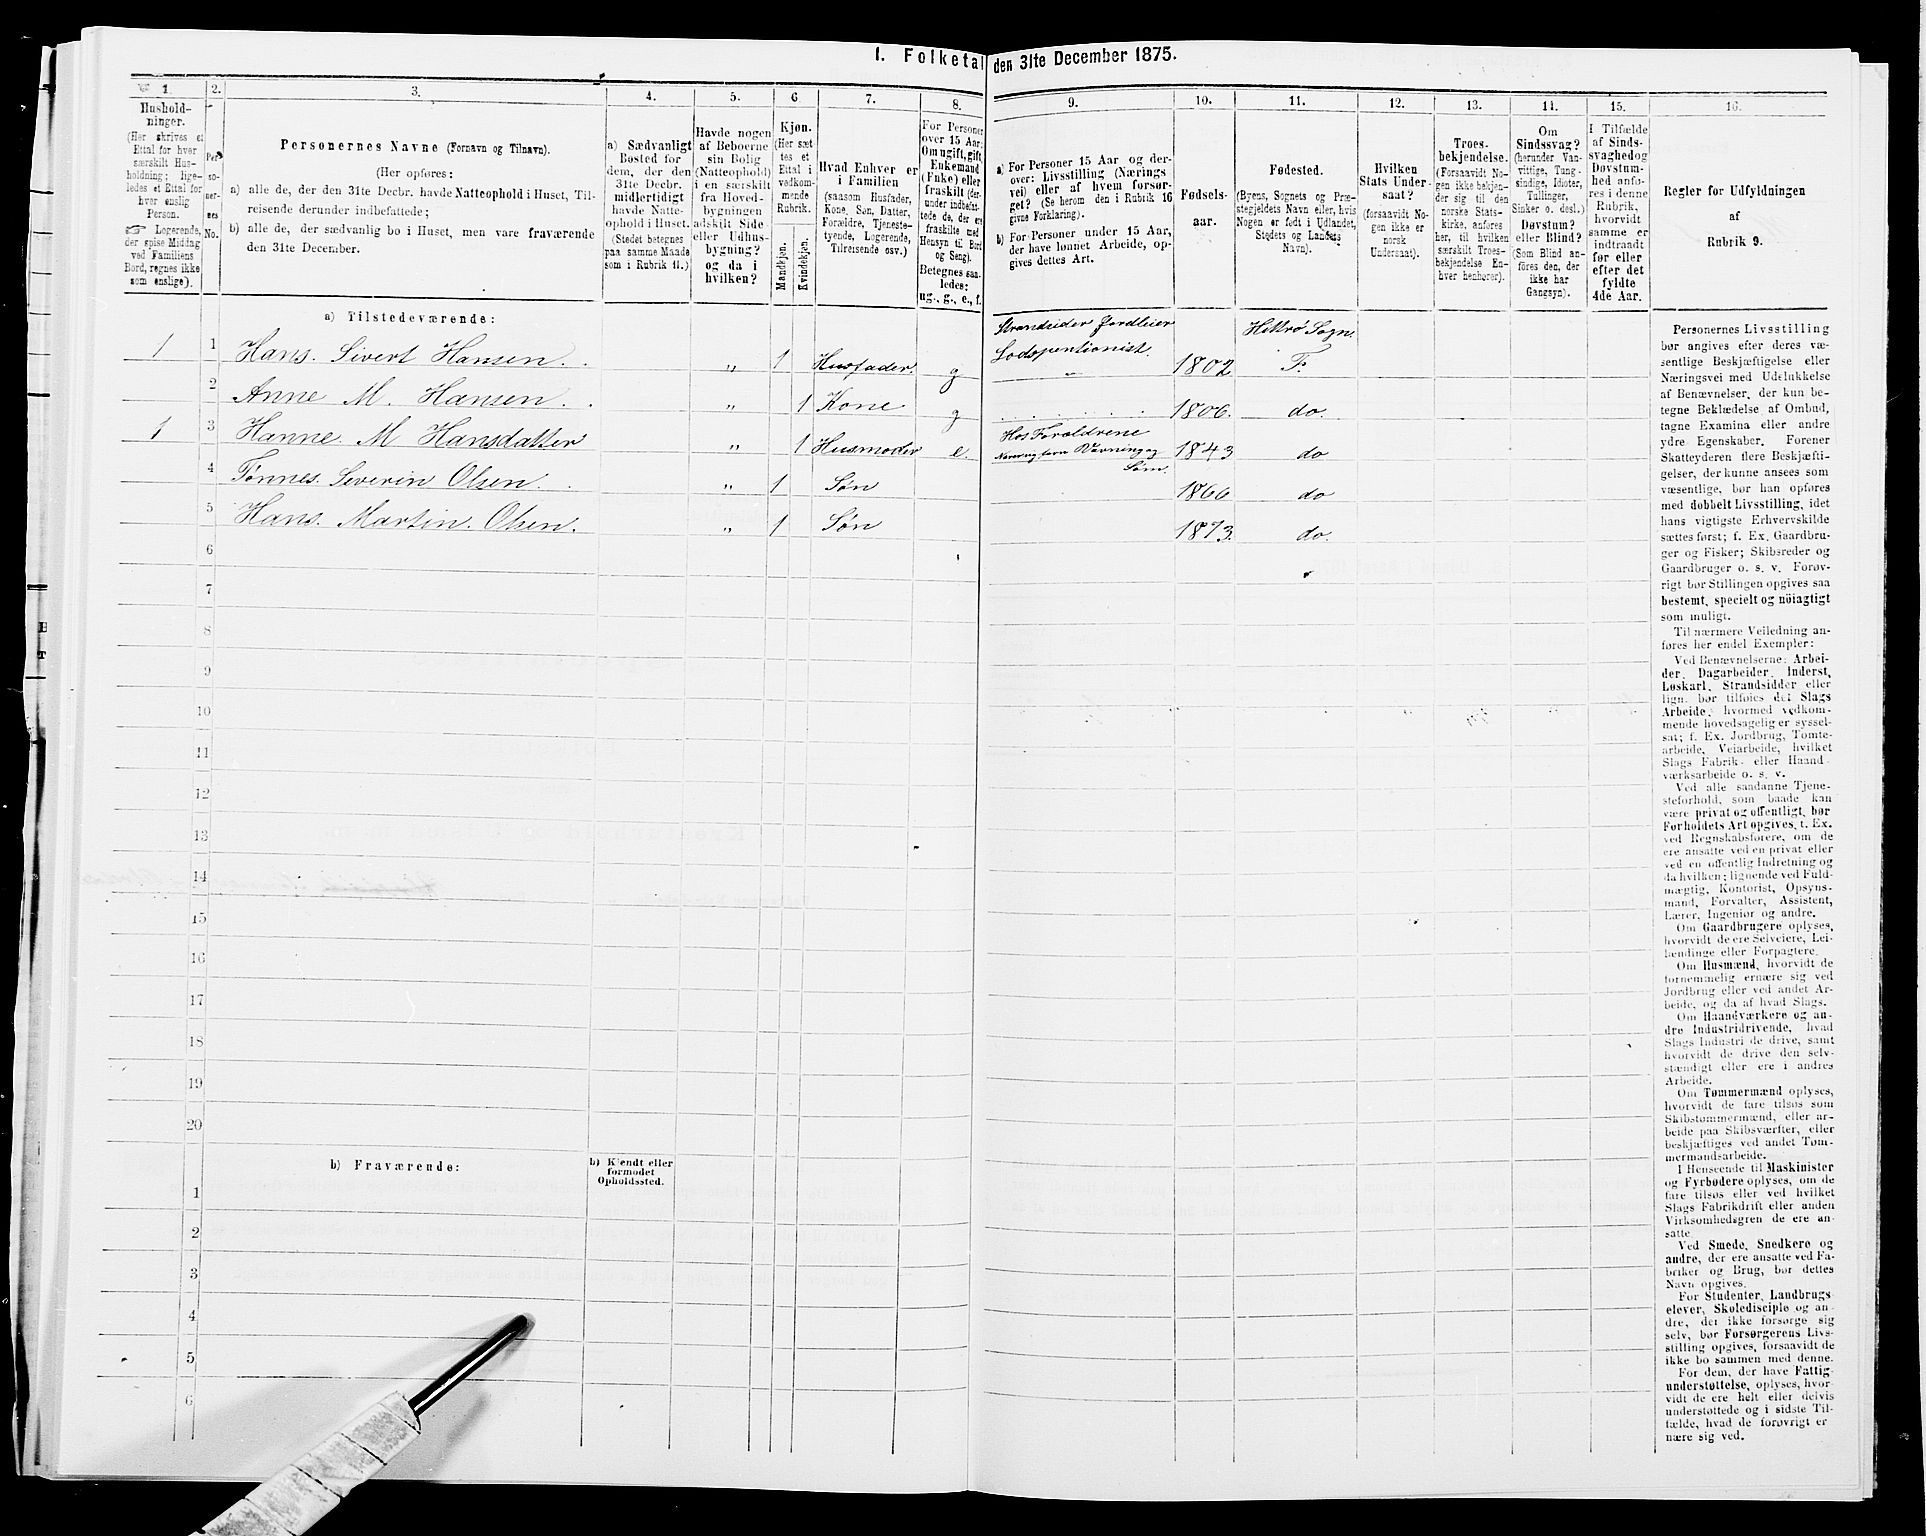 I. Folketal den 31te December 1875.
1.
Hushold-
ninger.
(Her skrives et
Ettal for hver
særskilt Hus-
holdning; lige-
ledes et Ettal for
hver enslig
Person.
☞ Logerende,
der spise Middag
ved Familiens
Bord, regnes ikke
som enslige).
2.
Per-
so-
ner-
nes
No.
3.
Personernes Navne (Fornavn og Tilnavn).
(Her opføres:
a) alle de, der den 31te Decbr. havde Natteophold i Huset, Til-
reisende derunder indbefattede;
b) alle de, der sædvanlig bo i Huset, men vare fraværende
den 31te December.
4.
a) Sædvanligt
Bosted for
dem, der den
31te Decbr.
midlertidigt
havde Natte-
ophold i Huset.
(Stedet betegnes
paa samme Maade
som i Rubrik 11.)
5.
Havde nogen
af Beboerne
sin Bolig
(Natteophold)
i en særskilt
fra Hoved-
bygningen
adskilt Side-
eller Udhus-
bygning?
og da i
hvilken?
6
Kjøn.
(Her sæt-
tes et
Ettal i
vedkom-
mende
Rubrik.
Mandkjøn.
Kvindekjøn.
7.
Hvad Enhver er
i Familien
(saasom Husfader,
Kone, Søn, Datter,
Forældre, Tjeneste-
tyende, Logerende,
Tilreisende osv.)
8.
For Personer
over 15 Aar:
Om ugift, gift,
Enkemand
(Enke) eller
fraskilt (der-
under indbefat-
tede de, der ere
fraskilte med
Hensyn til Bord
og Seng).
Betegnes saa-
ledes:
ug., g., e., f.
9.
a) For Personer 15 Aar og der-
over: Livsstilling (Nærings-
vei) eller af hvem forsør-
get? (Se herom den i Rubrik 16
givne Forklaring).
b) For Personer under 15 Aar,
der have lønnet Arbeide, op-
gives dettes Art.
10.
Fødsels-
aar.
11.
Fødested.
(Byens, Sognets og Præ-
stegjeldets Navn eller, hvis
Nogen er født i Udlandet,
Stedets og Landets
Navn).
12.
Hvilken
Stats Under-
saat?
(forsaavidt No-
gen ikke er
norsk
Undersaat).
13.
Troes-
bekjendelse.
(Forsaavidt No-
gen ikke bekjen-
der sig til den
norske Stats-
kirke, anføres
her, til hvilken
særskilt Troes-
bekjendelse En-
hver henhører).
14.
Om
Sindssvag?
(herunder Van-
vittige, Tung-
sindige, Idioter,
Tullinger,
Sinker o. desl.)
Døvstum?
eller Blind?
(Som Blind an-
føres den, der
ikke har
Gangsyn).
15.
I Tilfælde
af Sinds-
svaghed og
Døvstum-
hed anfø-
res i denne
Rubrik,
hvorvidt
samme er
indtraadt
før eller
efter det
fyldte
4de Aar.
16.
Regler for Udfyldningen
af
Rubrik 9.
a) Tilstedeværende:
Strandsider Jordleier
Hitterø Sogn.
1 1 Hans. Sivert Hansen. „ 1 Husfader. g Lodspentionist. „ 1802 F
2 Anne M. Hansen. „ 1 Kone g 1806. do.
1 3 Hanne. M Hansdatter „ 1 Husmoder e. Hos Forældrene 1843 do
4 Tønnes. Severin Olsen. „ 1 Søn 1866 do
5 Hans. Martin. Olsen. „ 1 Søn 1873. do.
6
7
8
9
10
11
12
13
14
15
16
17
18
19
20
b) Fraværende:
b) Kjendt eller
formodet
Opholdssted.
1
2
3
4
5
6
Personernes Livsstilling
bør angives efter deres væ-
sentlige Beskjæftigelse eller
Næringsvei med Udelukkelse
af Benævnelser, der kun be-
tegne Beklædelse af Ombud,
tagne Examina eller andre
ydre Egenskaber. Forener
Skatteyderen flere Beskjæfti-
gelser, der kunne ansees som
væsentlige, bør han opføres
med dobbelt Livsstilling, idet
hans vigtigste Erhvervskilde
sættes først; f. Ex. Gaardbru-
ger og Fisker; Skibsreder og
Gaardbruger o. s. v. Forøv-
rigt bør Stillingen opgives saa
bestemt, specielt og nöiagtigt
som muligt.
Til nærmere Veiledning an-
føres her endel Exempler:
Ved Benævnelserne: Arbei-
der, Dagarbeider, Inderst,
Løskarl, Strandsidder eller
lign. bør tilføies det Slags
Arbeide, hvormed vedkom-
mende hovedsagelig er syssel-
sat; f. Ex. Jordbrug, Tomte-
arbeide, Veiarbeide, hvilket
Slags Fabrik- eller Haand-
værksarbeide o. s. v.
Ved alle saadanne Tjene-
steforhold, som baade kan
være privat og offentligt, bør
Forholdets Art opgives, t. Ex.
ved Regnskabsførere, om de
ere ansatte ved en privat eller
ved en offentlig Indretning og
da hvilken; lignende ved Fuld-
mægtig, Kontorist, Opsyns-
mand, Forvalter, Assistent,
Lærer, Ingeniør og andre.
Om Gaardbrugere oplyses,
hvorvidt de ere Selveiere, Lei-
lændinge eller Forpagtere.
Om Husmænd, hvorvidt de
fornemmelig ernære sig ved
Jordbrug eller ved andet Ar-
beide, og da af hvad Slags.
Om Haandværkere og an-
dre Industridrivende, hvad
Slags Industri de drive, samt
hvorvidt de drive den selv-
stændigt eller ere i andres
Arbeide.
Om Tømmermænd oplyses,
hvorvidt de fare tilsøs som
Skibstømmermænd, eller ar-
beide paa Skibsværfter, eller
beskjæftiges ved andet Tøm-
mermandsarbeide.
I Henseende til Maskinister
og Fyrbødere oplyses, om de
fare tilsøs eller ved hvilket
Slags Fabrikdrift eller anden
Virksomhedsgren de ere an-
satte.
Ved Smede, Snedkere og
andre, der ere ansatte ved Fa-
briker og Brug, bør dettes
Navn opgives.
For Studenter, Landbrugs-
elever, Skoledisciple og an-
dre, der ikke forsørge sig
selv, bør Forsørgerens Livs-
stilling opgives, forsaavidt de
ikke bo sammen med denne.
For dem, der have Fattig-
understøttelse, oplyses, hvor-
vidt de ere helt eller delvis
understøttede og i sidste Til-
fælde, hvad de forøvrigt er-
nære sig ved.